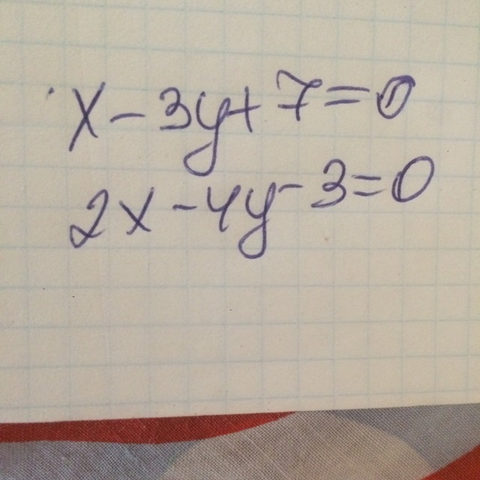 x-3y+7=0
2x-4y-3=0